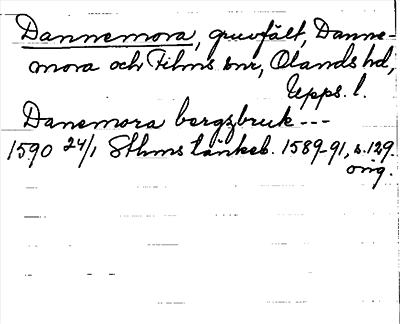 Dannemora, gruvfält, Danne-
mora och Films snr, Olands hd,
Upps. l.
Danemora bergzbruk ---
1590 24/1 Sthms tänkeb. 1589-91, s. 129.
orig.